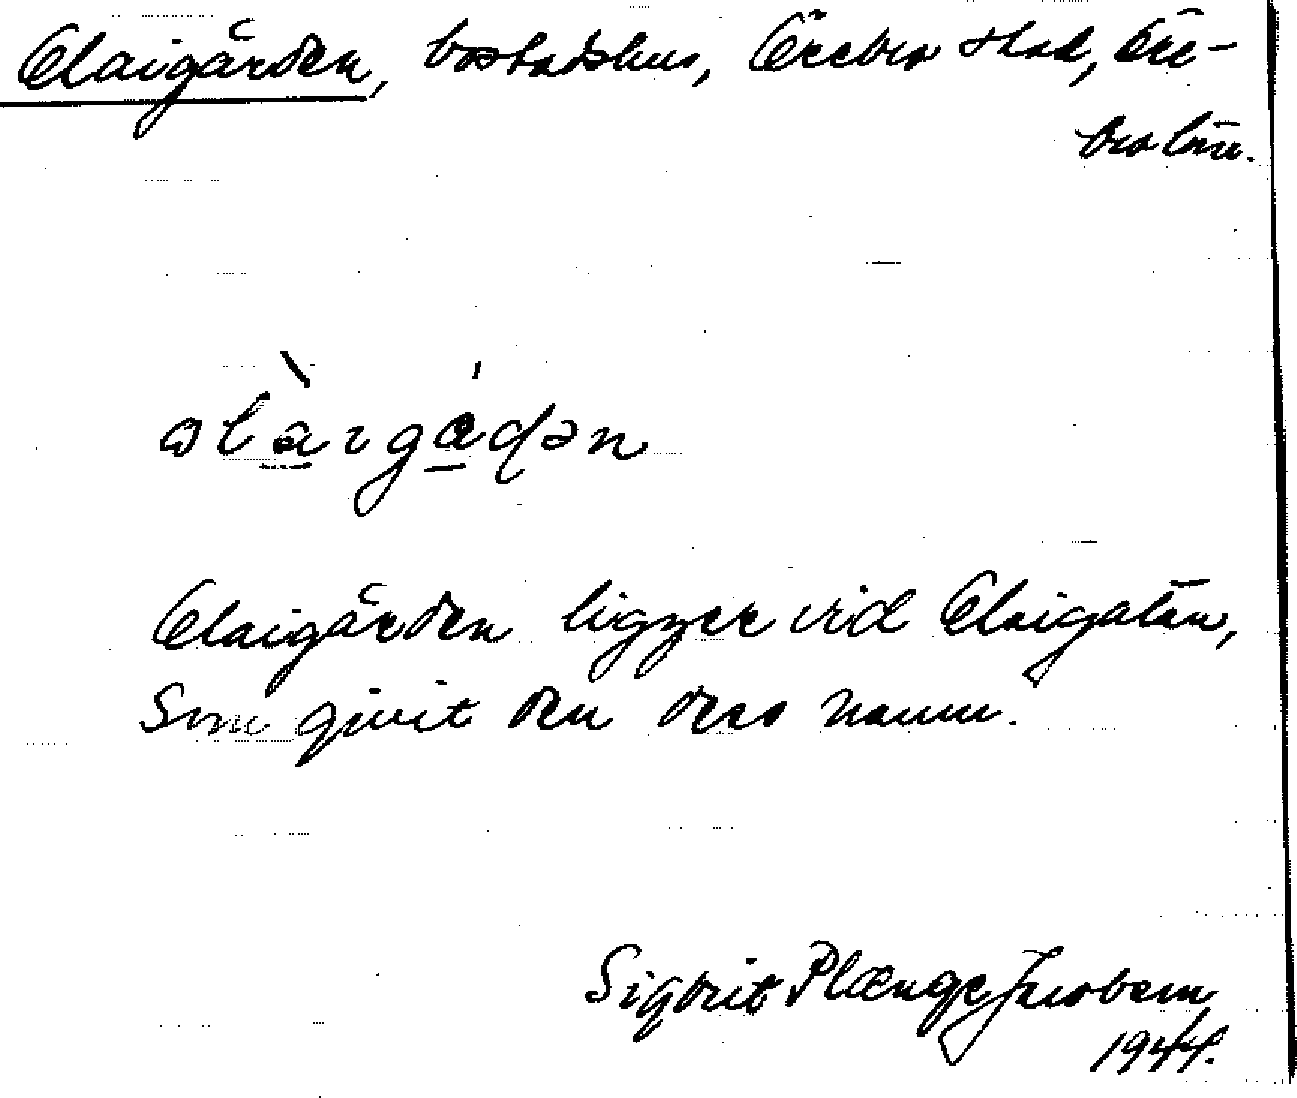 Olaigården, bostadshus, Örebro stad, Öre-
bro län.
Olaigården ligger vid Olaigatan,
som givit den dess namn.
Sigbrit Plænge Jacobson
1944.